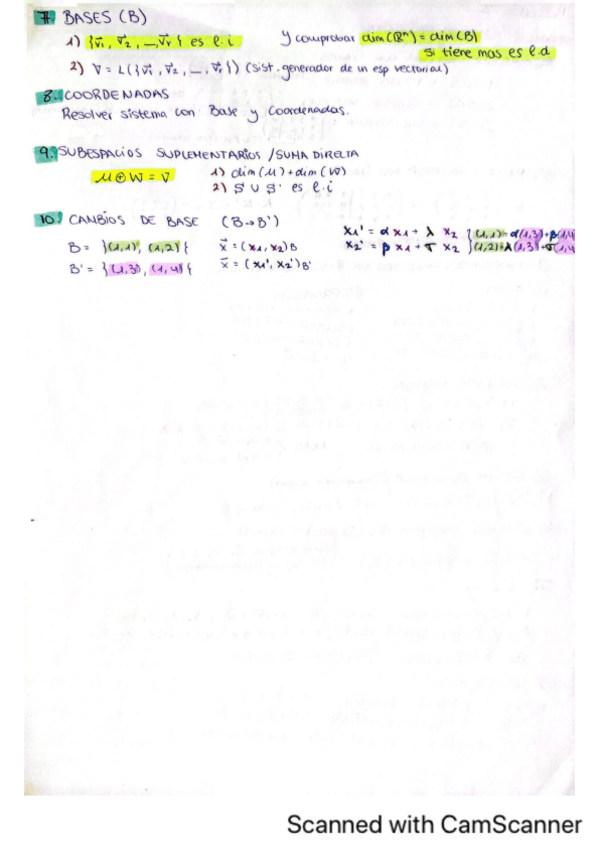 7. BASES (B)
1) {v⃗1, v⃗2, ..., v⃗r} es l.i y comprobar dim(ℝⁿ) = dim(B)
si tiene mas es l.d
2) V = L({v⃗1, v⃗2, ..., v⃗r}) (sist. generador de un esp vectorial)
8. COORDENADAS
Resolver sistema con Base y Coordenadas.
9. SUBESPACIOS SUPLEMENTARIOS / SUMA DIRECTA
U ⊕ W = V 1) dim(U) + dim(W)
2) S ∪ S' es l.i
10. CAMBIOS DE BASE (B→B')
x1' = α x1 + λ x2 {(1,1)=α(1,3)+β(1,4
x2' = β x1 + σ x2 }(1,2)=λ(1,3)+σ(1,4
B = }(1,1), (1,2){ x⃗ = (x1, x2)B
B' = }(1,3), (1,4){ x⃗ = (x1', x2')B'
Scanned with CamScanner